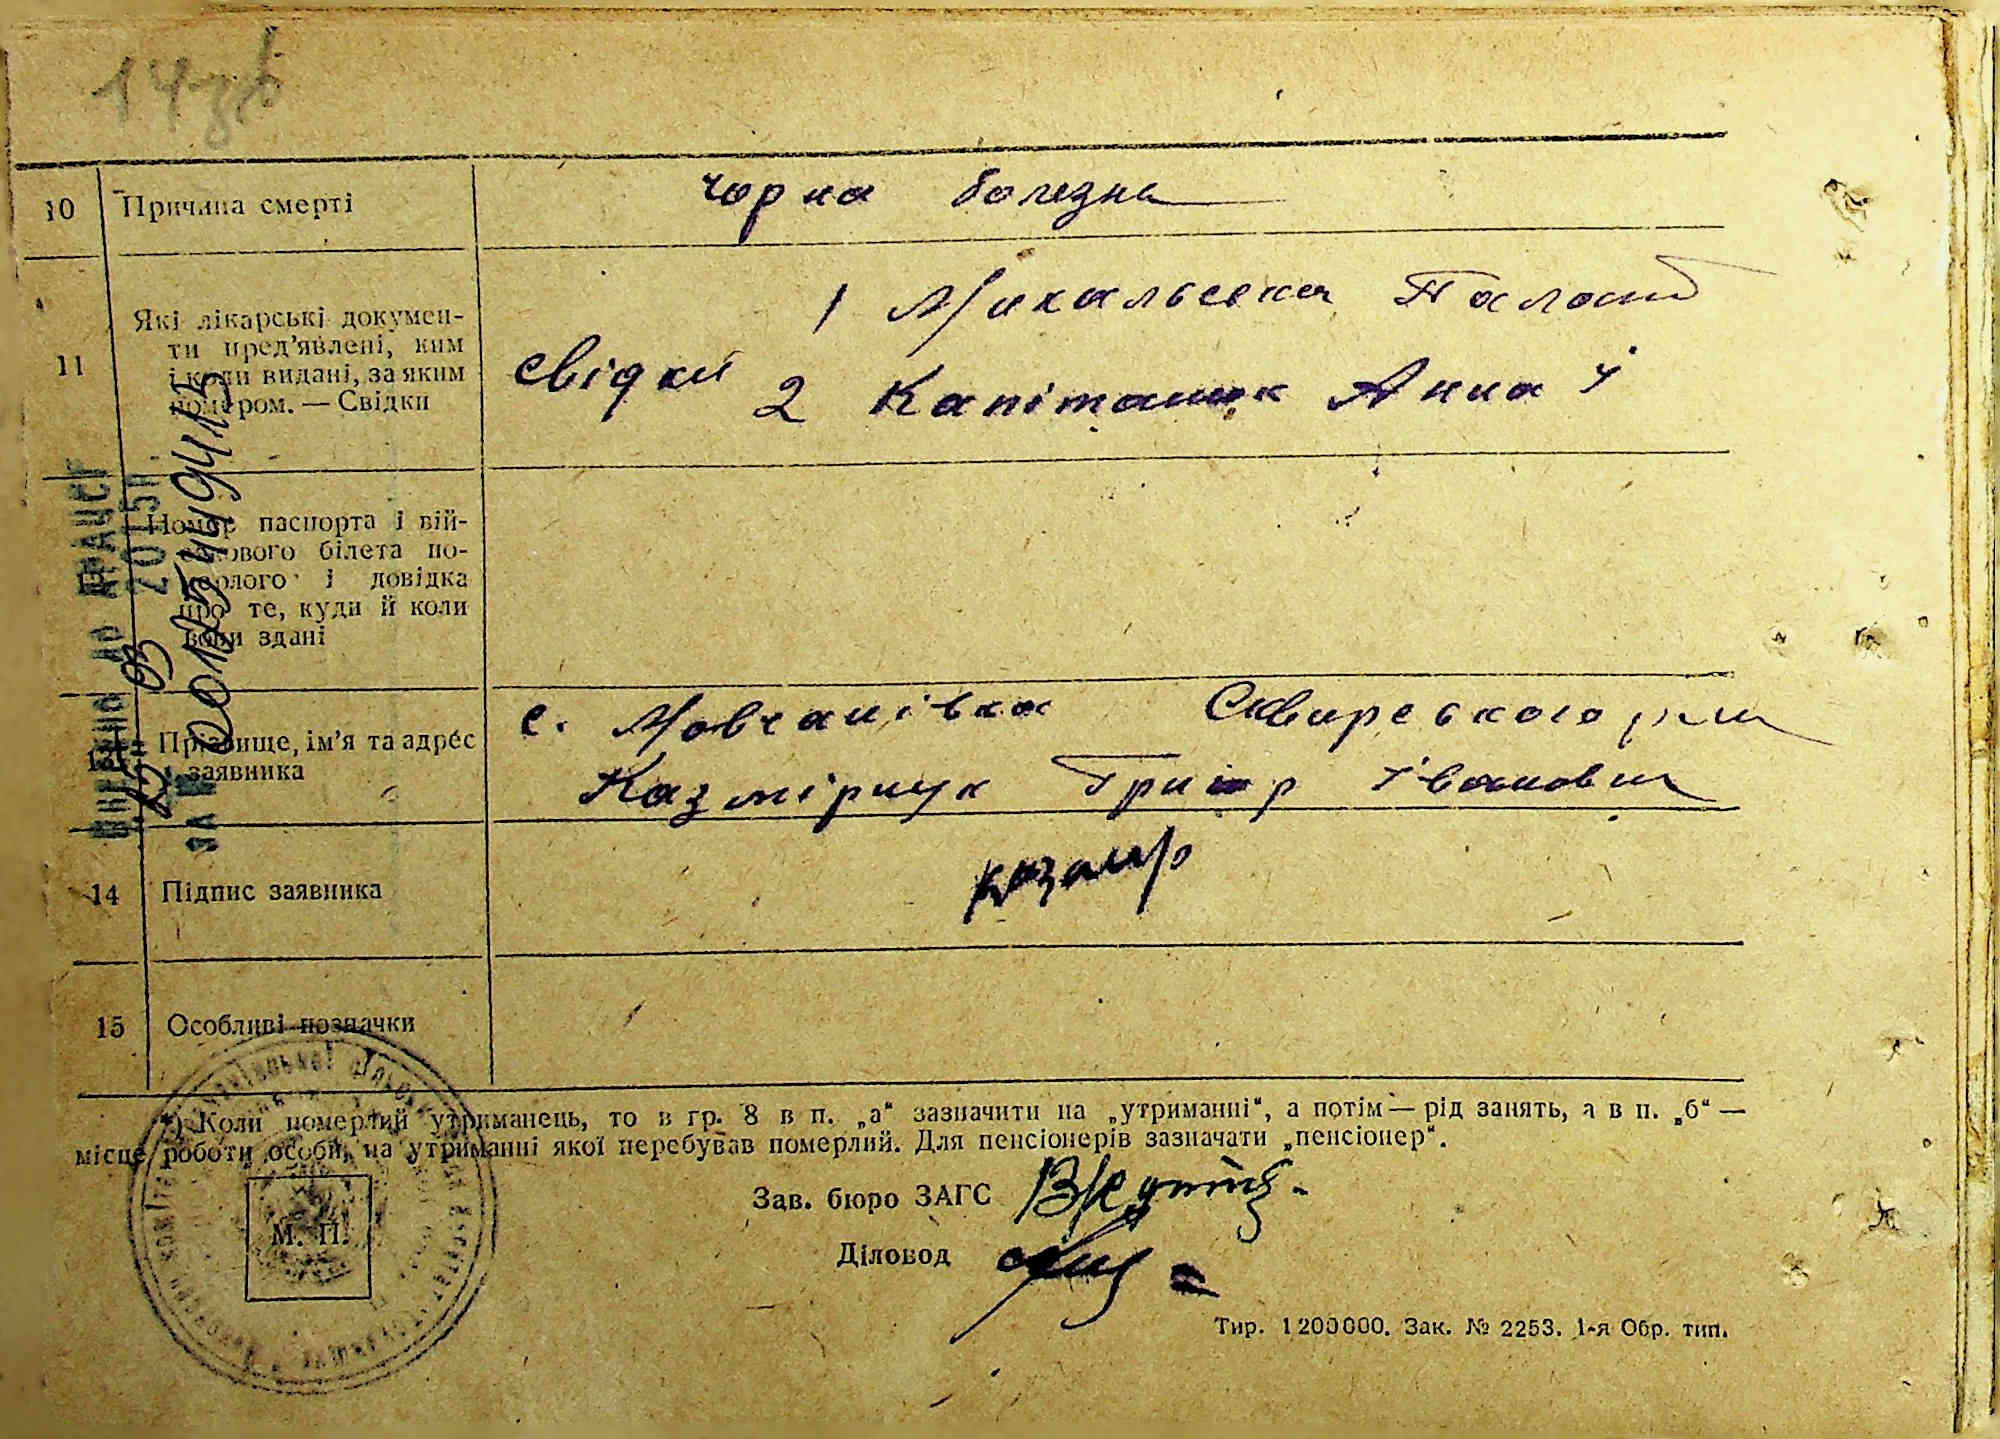 14зв
10 Причина смерті чорна болезнь
11 Які лікарські докумен-
ти пред'явлені, ким
і коли видані, за яким
номером. — Свідки
свідки
1 Михальська Палаг
2 Капіташук Анна І
Номер паспорта і вій-
ськового білета по-
мерлого і довідка
про те, куди й коли
вони здані
13 Прізвище, ім'я та адрес
заявника
с. Мовчанівка Сквирського р-ну
Казмірчук Григор Іванович
14 Підпис заявника
15 Особливі позначки
*) Коли померлий утриманець, то в гр. 8 в п. „а“ зазначити на „утриманні“, а потім — рід занять, а в п. „б“ —
місце роботи особи, на утриманні якої перебував померлий. Для пенсіонерів зазначати „пенсіонер“.
М. П.
Зав. бюро ЗАГС
Діловод
Тир. 1200000. Зак. № 2253. 1-я Обр. тип.
ДО ДРАЦСГ
2015
ЗА №